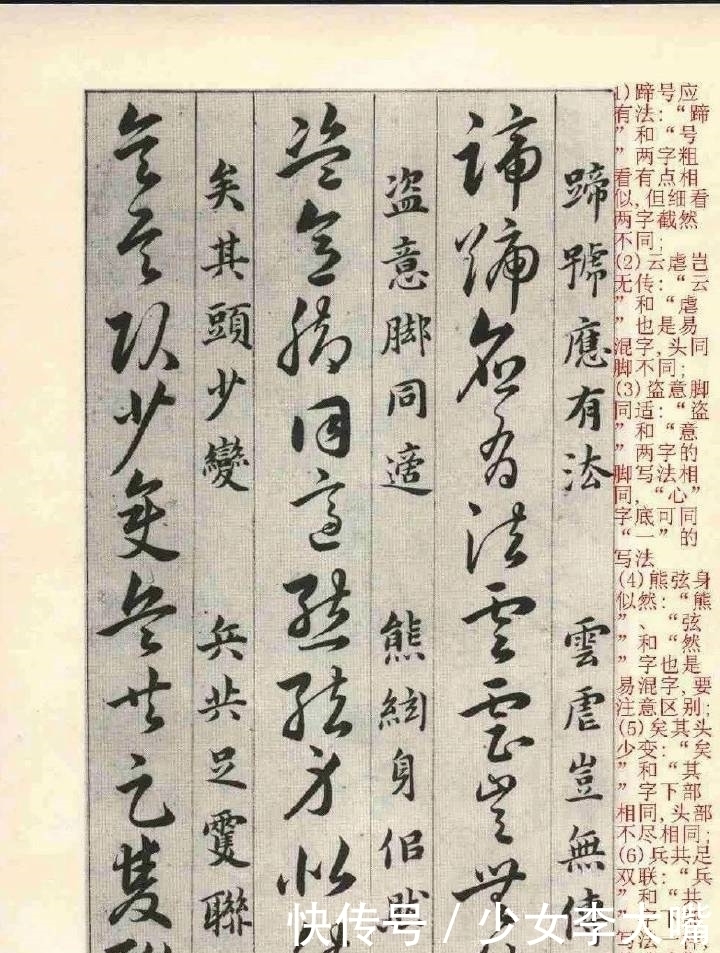 1)蹄号应
有法:“蹄
”和“号
”两字粗
看有点相
似,但细看
两字截然
不同;
(2)云虐岂
无传:“云
”和“虐
”也是易
混字,头同
脚不同;
(3)盗意脚
同适:“盗
”和“意
”两字的
脚写法相
同,“心”
字底可同
“一”的
写法
(4)熊弦身
似然:“熊
”、“弦
”和“然
”字也是
易混字,要
注意区别;
(5)矣其头
少变:“矣
”和“其
”字下部
相同,头部
不尽相同;
(6)兵共足
双联:“兵
”和“共
写法一样,
蹄號應有法 雲虐豈無傳
蹄號應有法雲虐豈無
盗意脚同適 熊絃身侣然
盗意脚同適熊絃身似
矣其頭少變 兵共足雙聯
矣其頭少變兵共足雙聯
快传号/少女李大嘴